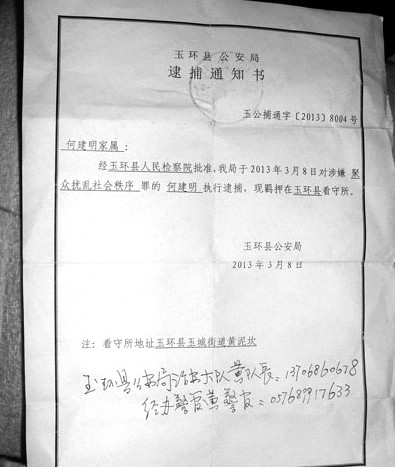 玉环县公安局
逮捕通知书
玉公捕通字〔2013〕8004号
何建明家属：
经玉环县人民检察院批准,我局于2013年3月8日对涉嫌 聚
众扰乱社会秩序 罪的 何建明 执行逮捕，现羁押在玉环县看守所。
玉环县公安局
2013年3月8日
注：看守所地址玉环县玉城街道黄泥坎
玉环县公安局治安大队黄队长：13706860678
经办警官黄警官：057689917633